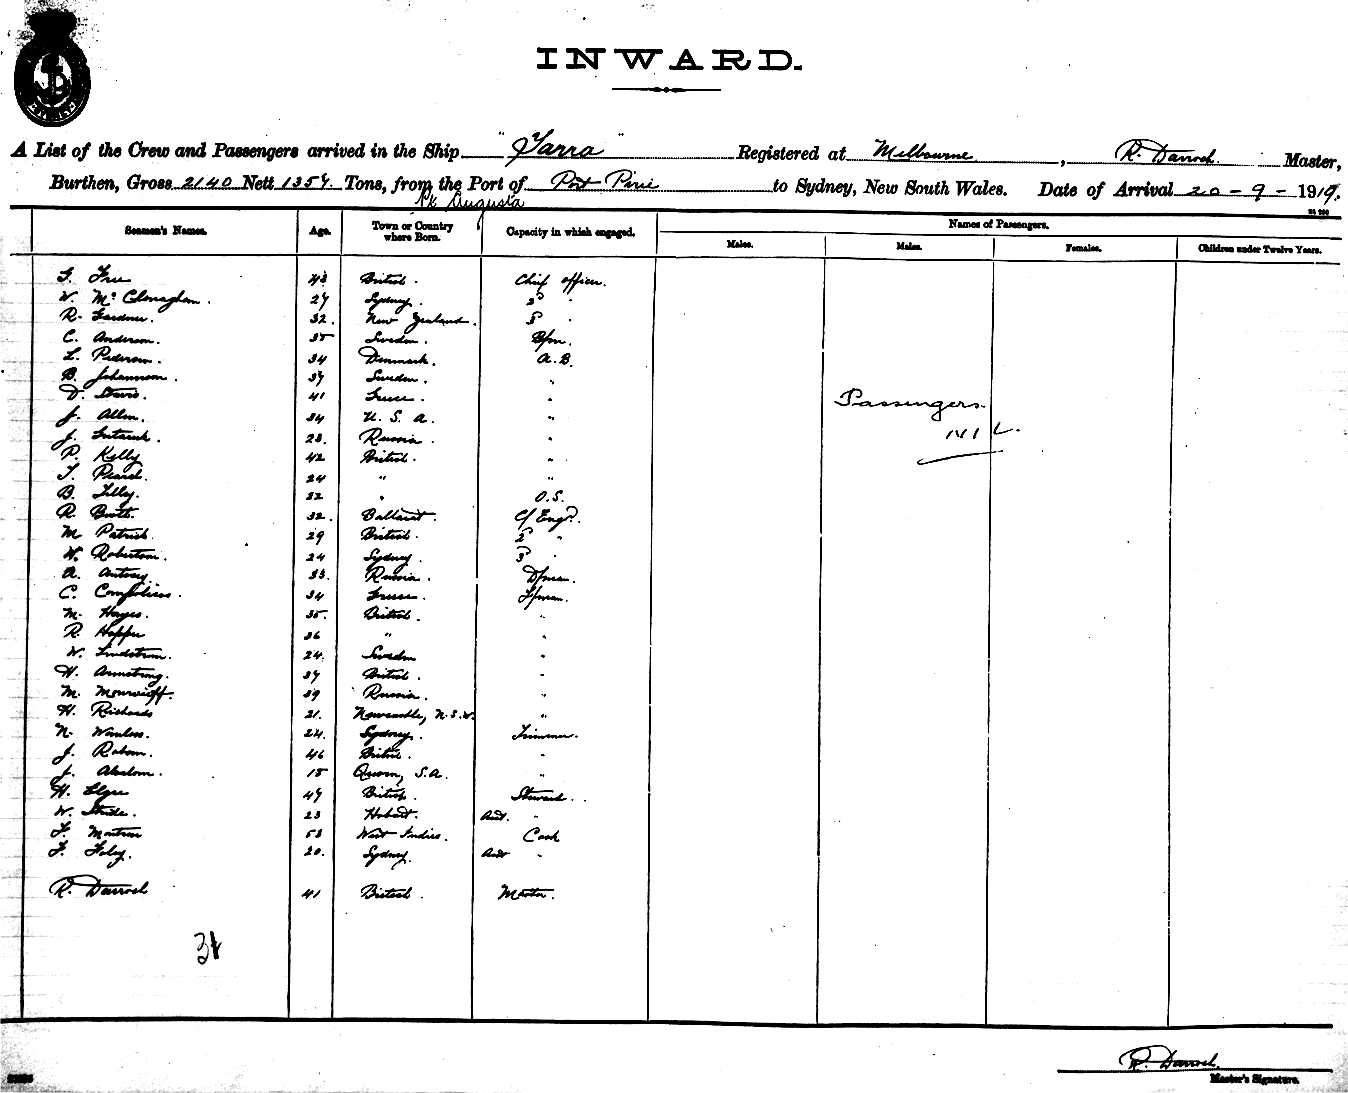 INWARD.
A List of the Crew and Passengers arrived in the Ship "Yarra" Registered at Melbourne, R. Darroch Master,
Burthen, Gross 2140 Nett 1354 Tons, from the Port of Port Pirie to Sydney, New South Wales. Date of Arrival 20-9-1919.
Pt Augusta
Seamen's Names. Age. Town or Country where Born. Capacity in which engaged. Names of Passengers.
Males. Males. Females. Children under Twelve Years.
48 British. Chief officer.
W. McClenaghan. 27 Sydney. 2d "
R. Gardner. 32. New Zealand. 3 "
C. Anderson. 35 Sweden.
L. Pederson. 34 Denmark. A.B.
B. Johannson. 37 Sweden. "
D. 41 "
J. Allen. 34 U. S. A. "
J. 28. Russia. "
P. Kelly 42 British. "
T. 24 " "
B. Lilly. 22 " O.S.
R. 32. Ballarat. C/Engr.
M Patrick. 29 British. 2 "
W. Robertson. 24 Sydney. 3 "
A. Antony 33. Russia. D/man.
C. 34 F/man.
M. Hayes. 35. British. "
R. Hopper 36 " "
W. Lindstrom. 24. Sweden "
H. Armstrong. 37 British. "
M. 39 Russia. "
H. Richards 21. Newcastle, N.S.W. "
N. 24. Sydney. Trimmer.
J. Robson. 46 British. "
J. 18 Quorn, S.A. "
H. 47 British. Steward.
W. 23 Hobart. Asst. "
F. 53 West Indies. Cook
F. Foley. 20. Sydney. Asst "
R. Darroch 41 British. Master.
Passengers.
NIL.
31
R. Darroch.
Master's Signature.